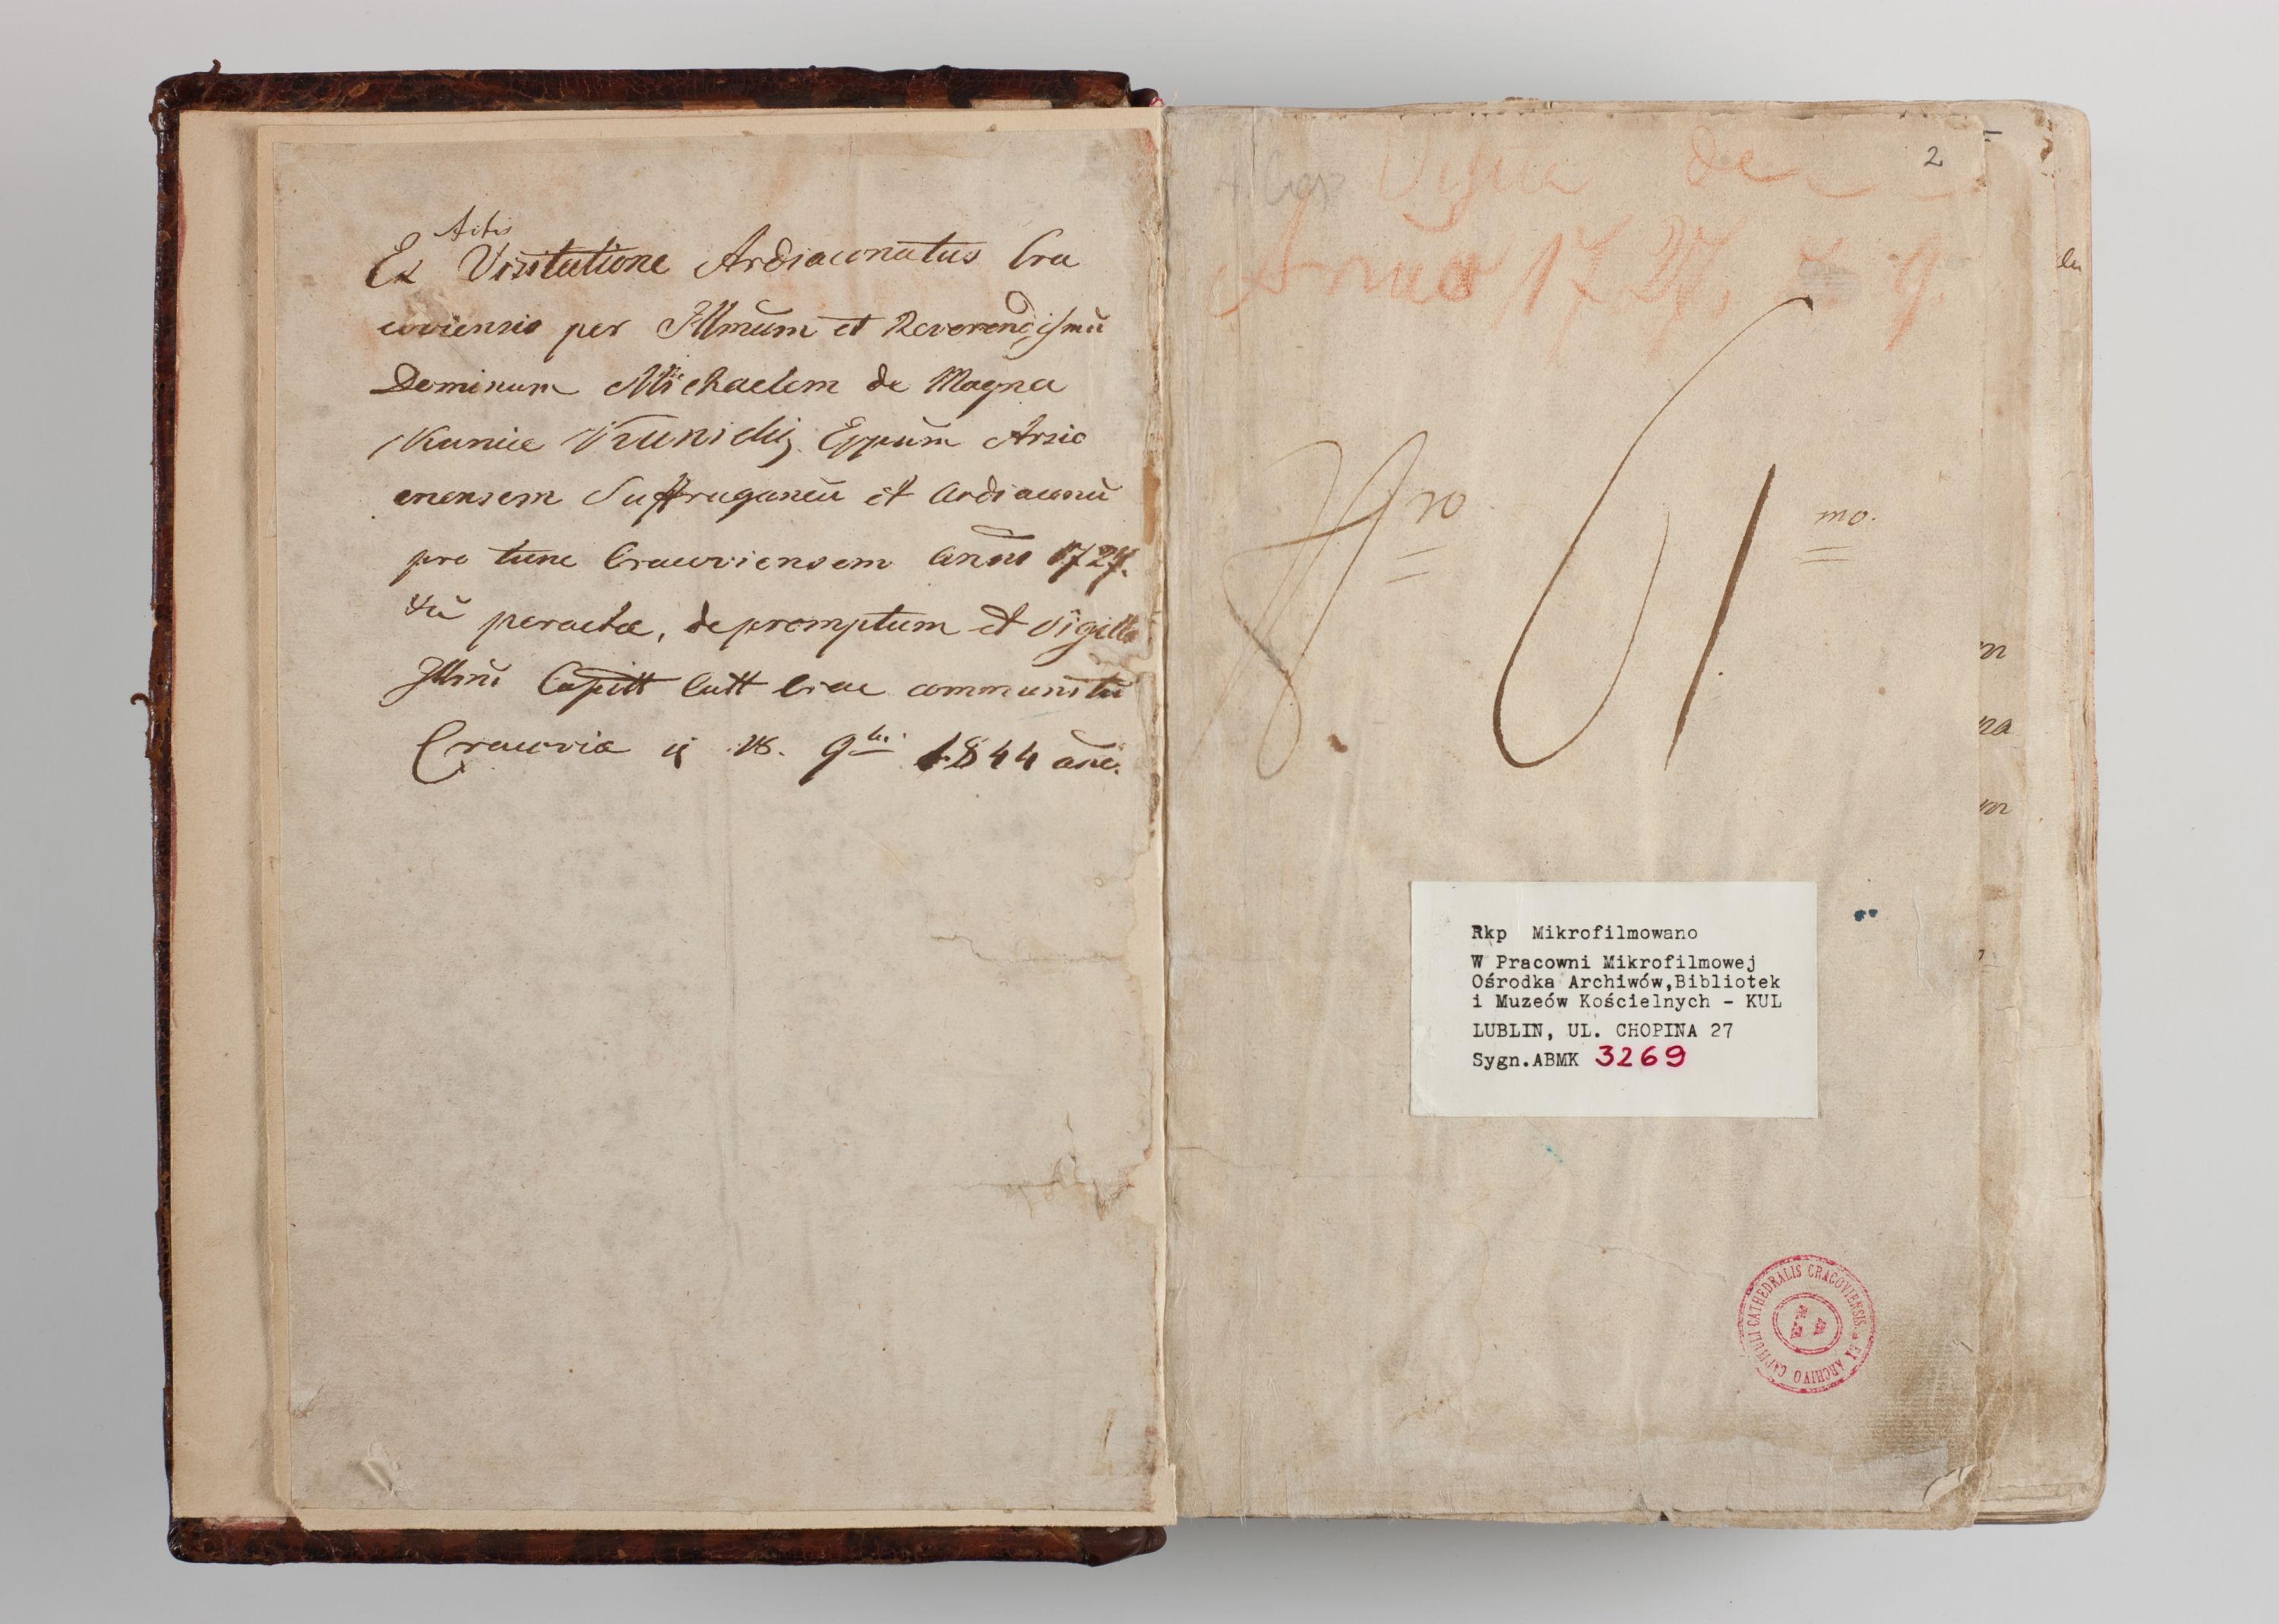 Actis
Ex Visitatione Ardiaconatus Cra
coviensis per Illmum et Reverendismu
Dominum Michaelem de Magna
Kunice Kunicki Eppum Arsic
enensem Suffraganeu et Ardiaconu
pro tunc Cracoviensem Anno 1727.
peractae, depromptum et Sigillo
Illmi Capitt Catt Crac communitu
Cracovia 1844
2
Visita de
Anno 1727. 9.
Nro 61 mo.
Rkp Mikrofilmowano
W Pracowni Mikrofilmowej
Ośrodka Archiwów,Bibliotek
i Muzeów Kościelnych - KUL
LUBLIN, UL. CHOPINA 27
Sygn.ABMK 3269
EX ARCHIVO CAPITULI CATHEDRALIS CRACOVIENSIS